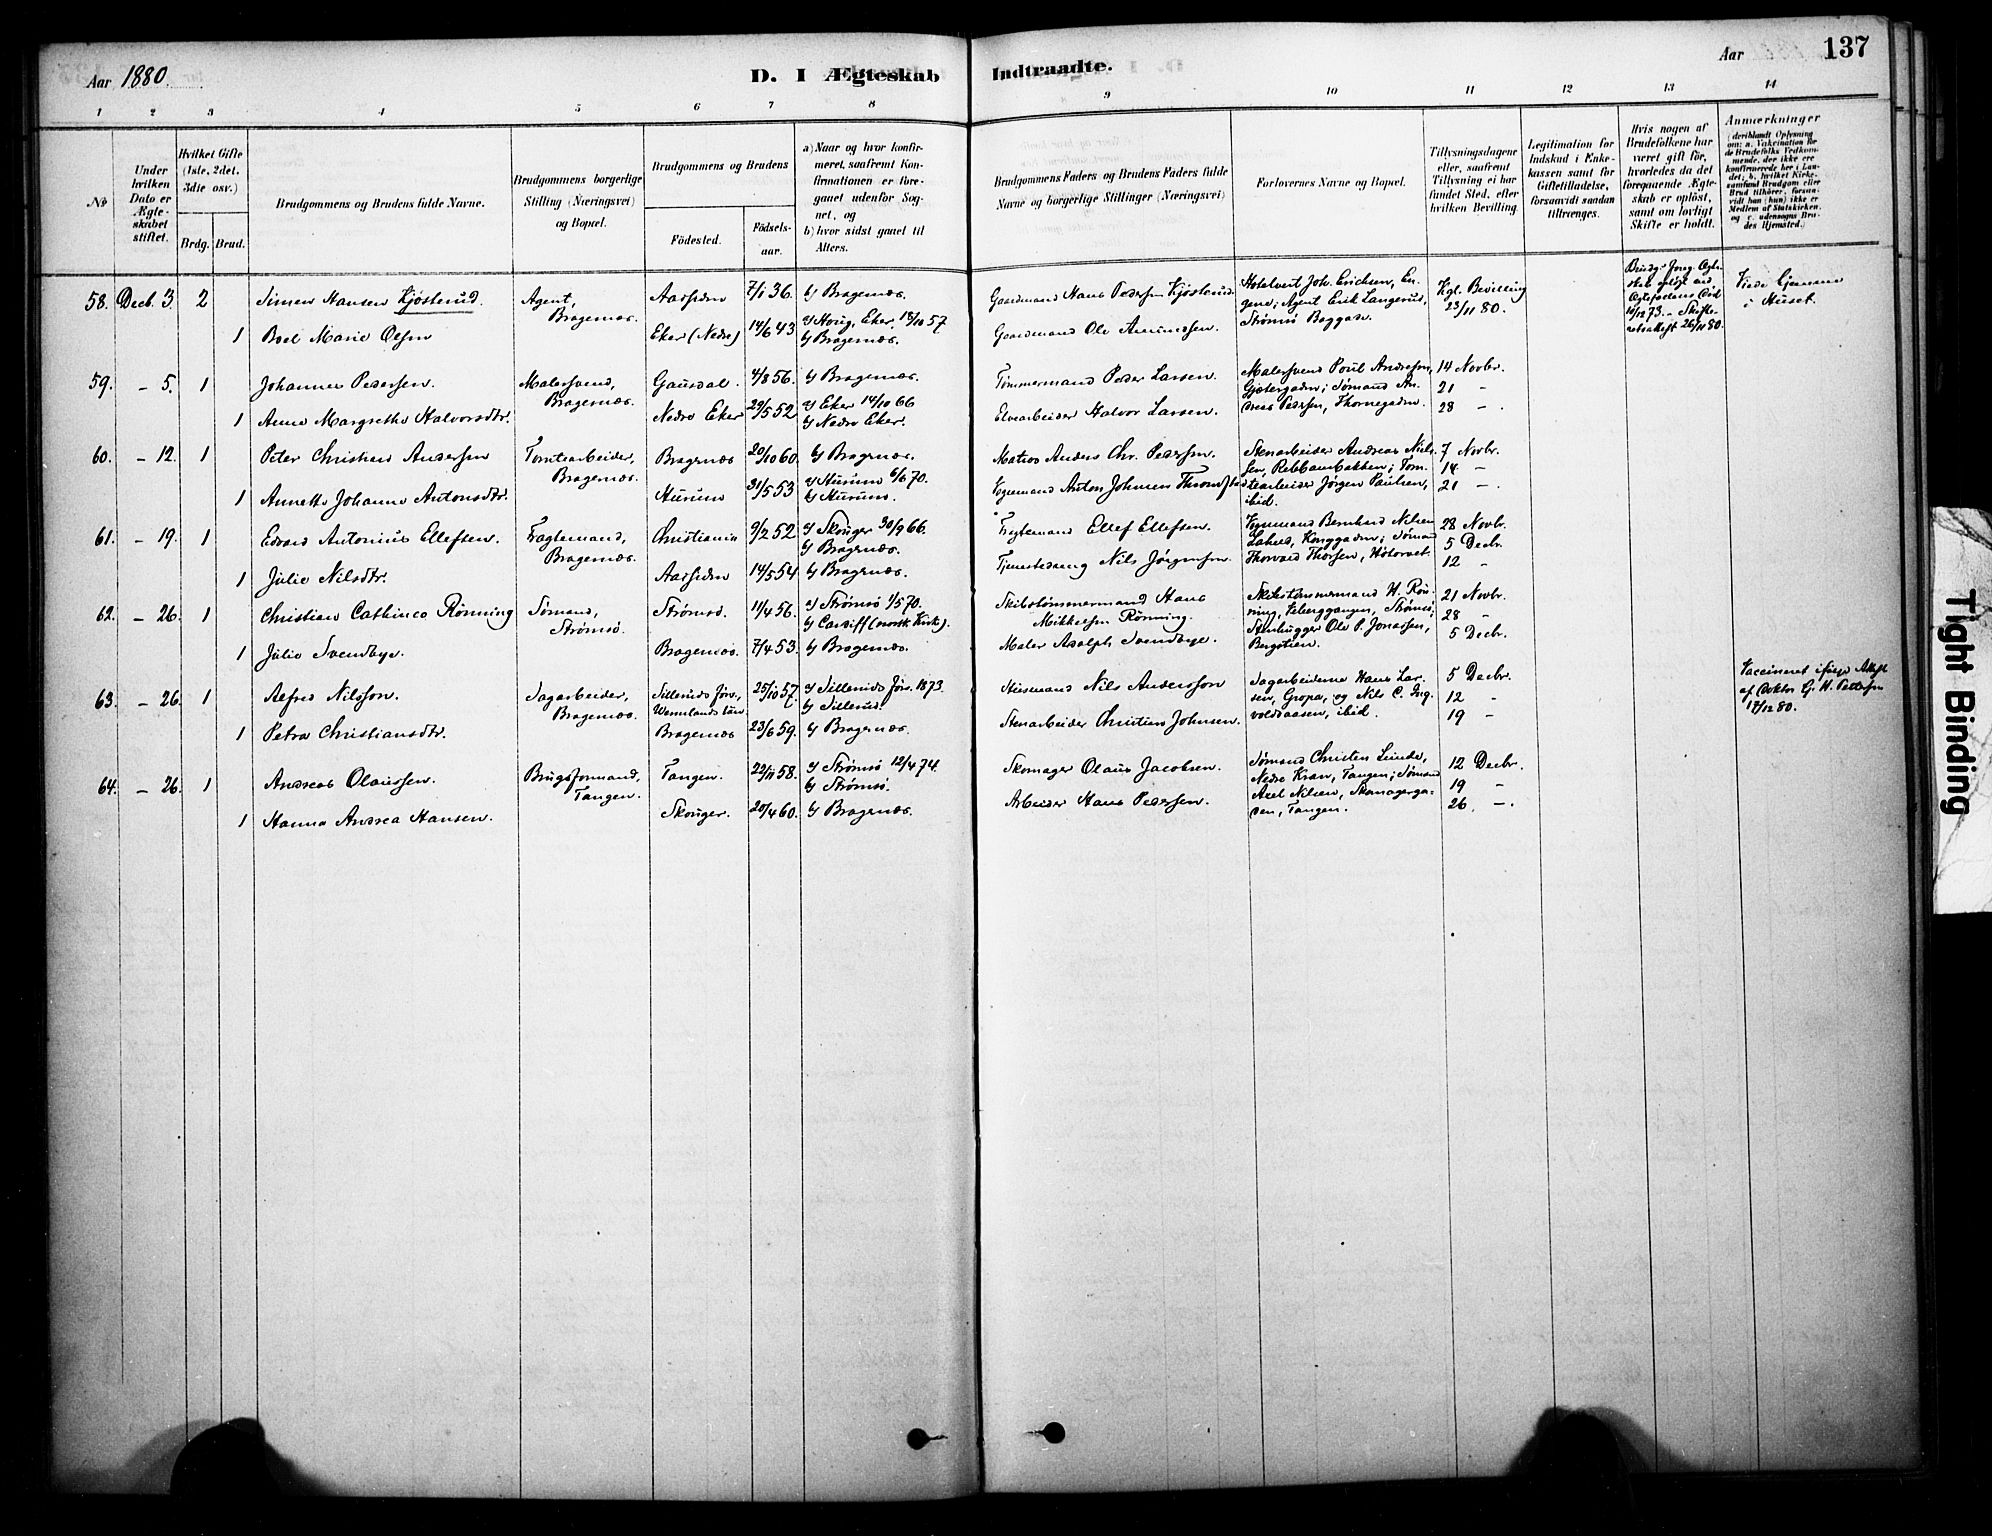 Aar 1880.
D. I Ægteskab
Indtraadte.
Aar
137
1 2 3 4 5 6 7 8
9 10 11 12 13 14
No
Under hvilken Dato er Ægteskabet stiftet.
Hvilket Gifte (1ste, 2det, 3die osv.)
Brdg. Brud.
Brudgommens og Brudens fulde Navne.
Brudgommens borgerlige Stilling (Næringsvei) og Bopæl.
Brudgommens og Brudens
Födested.
Födselsaar.
a) Naar og hvor konfirmeret, saafremt Konfirmationen er foregaaet udenfor Sognet, og
b) hvor sidst gaaet til Alters.
Brudgommens Faders og Brudens Faders fulde Navne og borgerlige Stillinger (Næringsvei)
Forlovernes Navne og Bopæl.
Tillysningsdagene eller, saafremt Tillysning ei har fundet Sted, efter hvilken Bevilling.
Legitimation for Indskud i Enkekassen samt for Giftetilladelse, forsaavidt saadan tiltrænges.
Hvis nogen af Brudefolkene har været gift för, hvorledes da det foregaaende Ægteskab er oplöst, samt om lovligt Skifte er holdt.
Anmærkninger
58. Decb. 3 2 Simen Hansen Kjösterud. Agent, Bragernæs. Aassiden 7/1 36. b) Bragernæs. Gaardmand Hans Pedersen Kjösterud Hotelvert Joh. Erichsen, Engene; Agent Erik Langerud, Strømsö Baggade. Kgl. Bevilling 23/11 80.
1 Boel Marie Olsen Eker (Nedre) 14/6 43 a) Houg, Eker, 18/10 57 b) Bragernæs. Gaardmand Ole Amundsen.
59. - 5. 1 Johannes Pedersen. Malersvend, Bragernæs. Gausdal. 4/8 56. b) Bragernæs. Tømmermand Peder Larsen. Malersvend Poul Andresen, Gjetergaden; Sømand Andreas Pedersen, Thornegaden. 14 Novbr. 21 - 28 -.
1 Anne Margrethe Halvorsdtr. Nedre Eker 29/5 52 a) Eker 14/10 66 b) Nedre Eker. Elvearbeider Halvor Larsen.
60. - 12. 1 Peter Christian Andersen Tomtearbeider, Bragernæs. Bragernæs 20/10 60. b) Bragernæs. Matros Anders Chr. Pedersen. Stenarbeider Andreas Nilsen, Rebbanbakken; Tomtearbeider Jørgen Paulsen, ibid. 7 Novbr. 14 - 21 -.
1 Annette Johanne Antonsdtr. Hurum 31/5 53 a) Hurum 6/6 70. b) Hurum. Anton Johnsen
61. - 19. 1 Edvard Antonius Ellefsen. Fragtemand, Bragernæs. Christiania 9/2 52 a) Skouger 30/9 66. b) Bragernæs. Fragtemand Ellef Ellefsen. Bernhard Nilsen Kongegaden; Sømand Thorvald Thorsen, Høtorvet. 28 Novbr. 5 Decbr. 12 -
1 Julie Nilsdtr. Aassiden 14/5 54 b) Bragernæs. Nils Jørgensen.
62. - 26. 1 Christian Cathinco Rönning Sömand, Strömsö. Strömsö. 11/4 56. a) Strömsö 1/5 70. b) Cardiff (norsk Kirke). Skibstömmermand Hans Mikkelsen Rönning. Skibstömmermand H. Rönning, Strömsö; Stenhugger Ole P. Jonassen, Bergstien. 21 Novbr. 28 - 5 Decbr.
1 Julie Svendbye. Bragernæs. 7/4 53. b) Bragernæs. Maler Adolph Svendbye.
63. - 26. 1 Alfred Nilsson. Sagarbeider, Bragernæs. 25/10 57. 1873. b) Sillerud. Husmand Nils Andersson Sagarbeiderne Hans Larsen, Gropa, og Nils C. Ingvoldsaasen, ibid. 5 Decbr. 12 - 19 - Vaccineret ifølge Attest af Doktor G. H. Pettersen 17/12 80.
1 Petra Christiansdtr. Bragernæs 23/6 59. b) Bragernæs. Stenarbeider Christian Johnsen.
64. - 26. 1 Andreas Olaussen. Brugsformand, Tangen. Tangen. 22/11 58. a) Strömsö 12/4 74. b) Strömsö. Skomager Olaus Jacobsen. Sømand Christen Lunde, Nedre Kran, Tangen; Sømand Axel Nilsen, Skomagergaden, Tangen. 12 Decbr. 19 - 26. -.
1 Hanna Andrea Hansen. Skouger. 20/4 60. b) Bragernæs. Arbeider Hans Pedersen.
Tight Binding